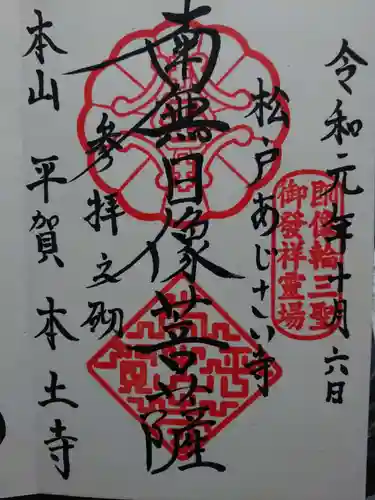 令和元年十月六日
即像輪三聖
御發祥霊場
松戸あじさい寺
南無日像菩薩
参拝之砌
本山 平賀 本土寺